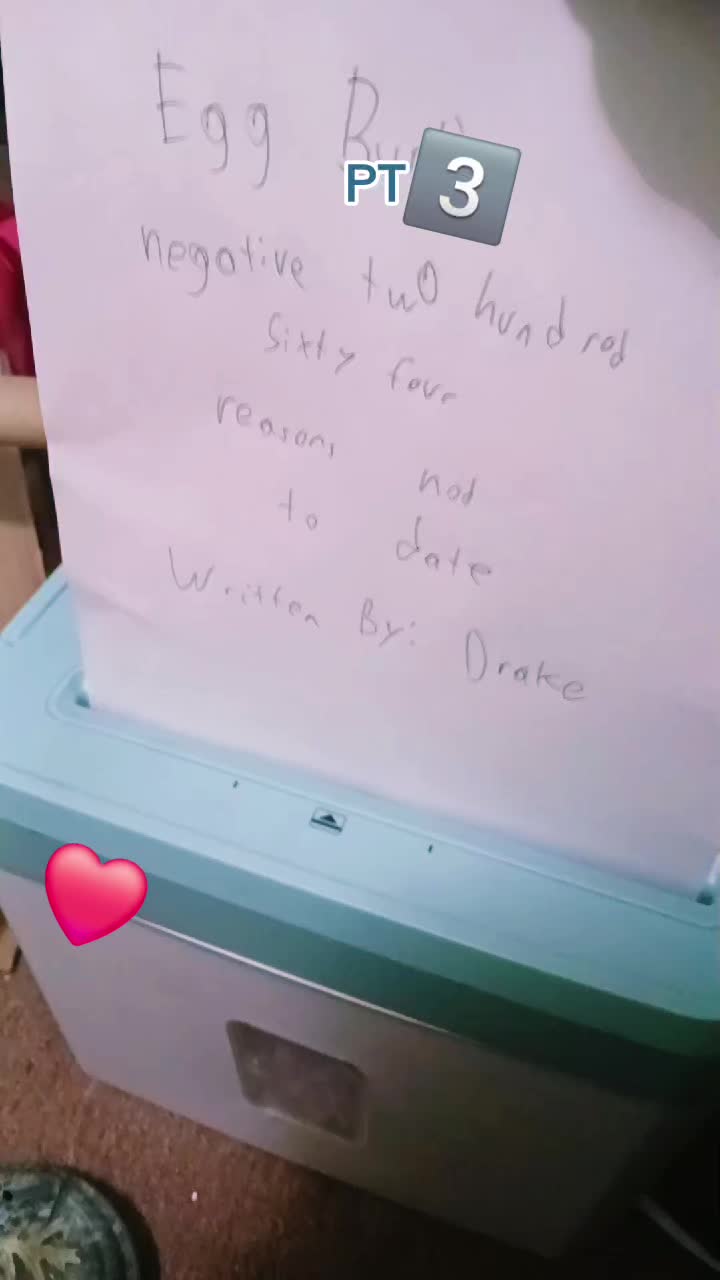 Egg
PT 3
negative two hundred
Sixty four
reasons not
to date
Written By: Drake